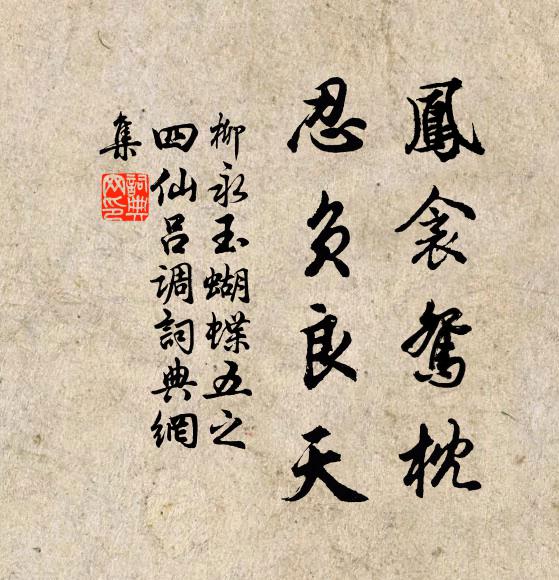 鳳衾鴛枕
忍負良天
柳永玉蝴蝶五之
四仙呂調詞典網
集
詞典
网印